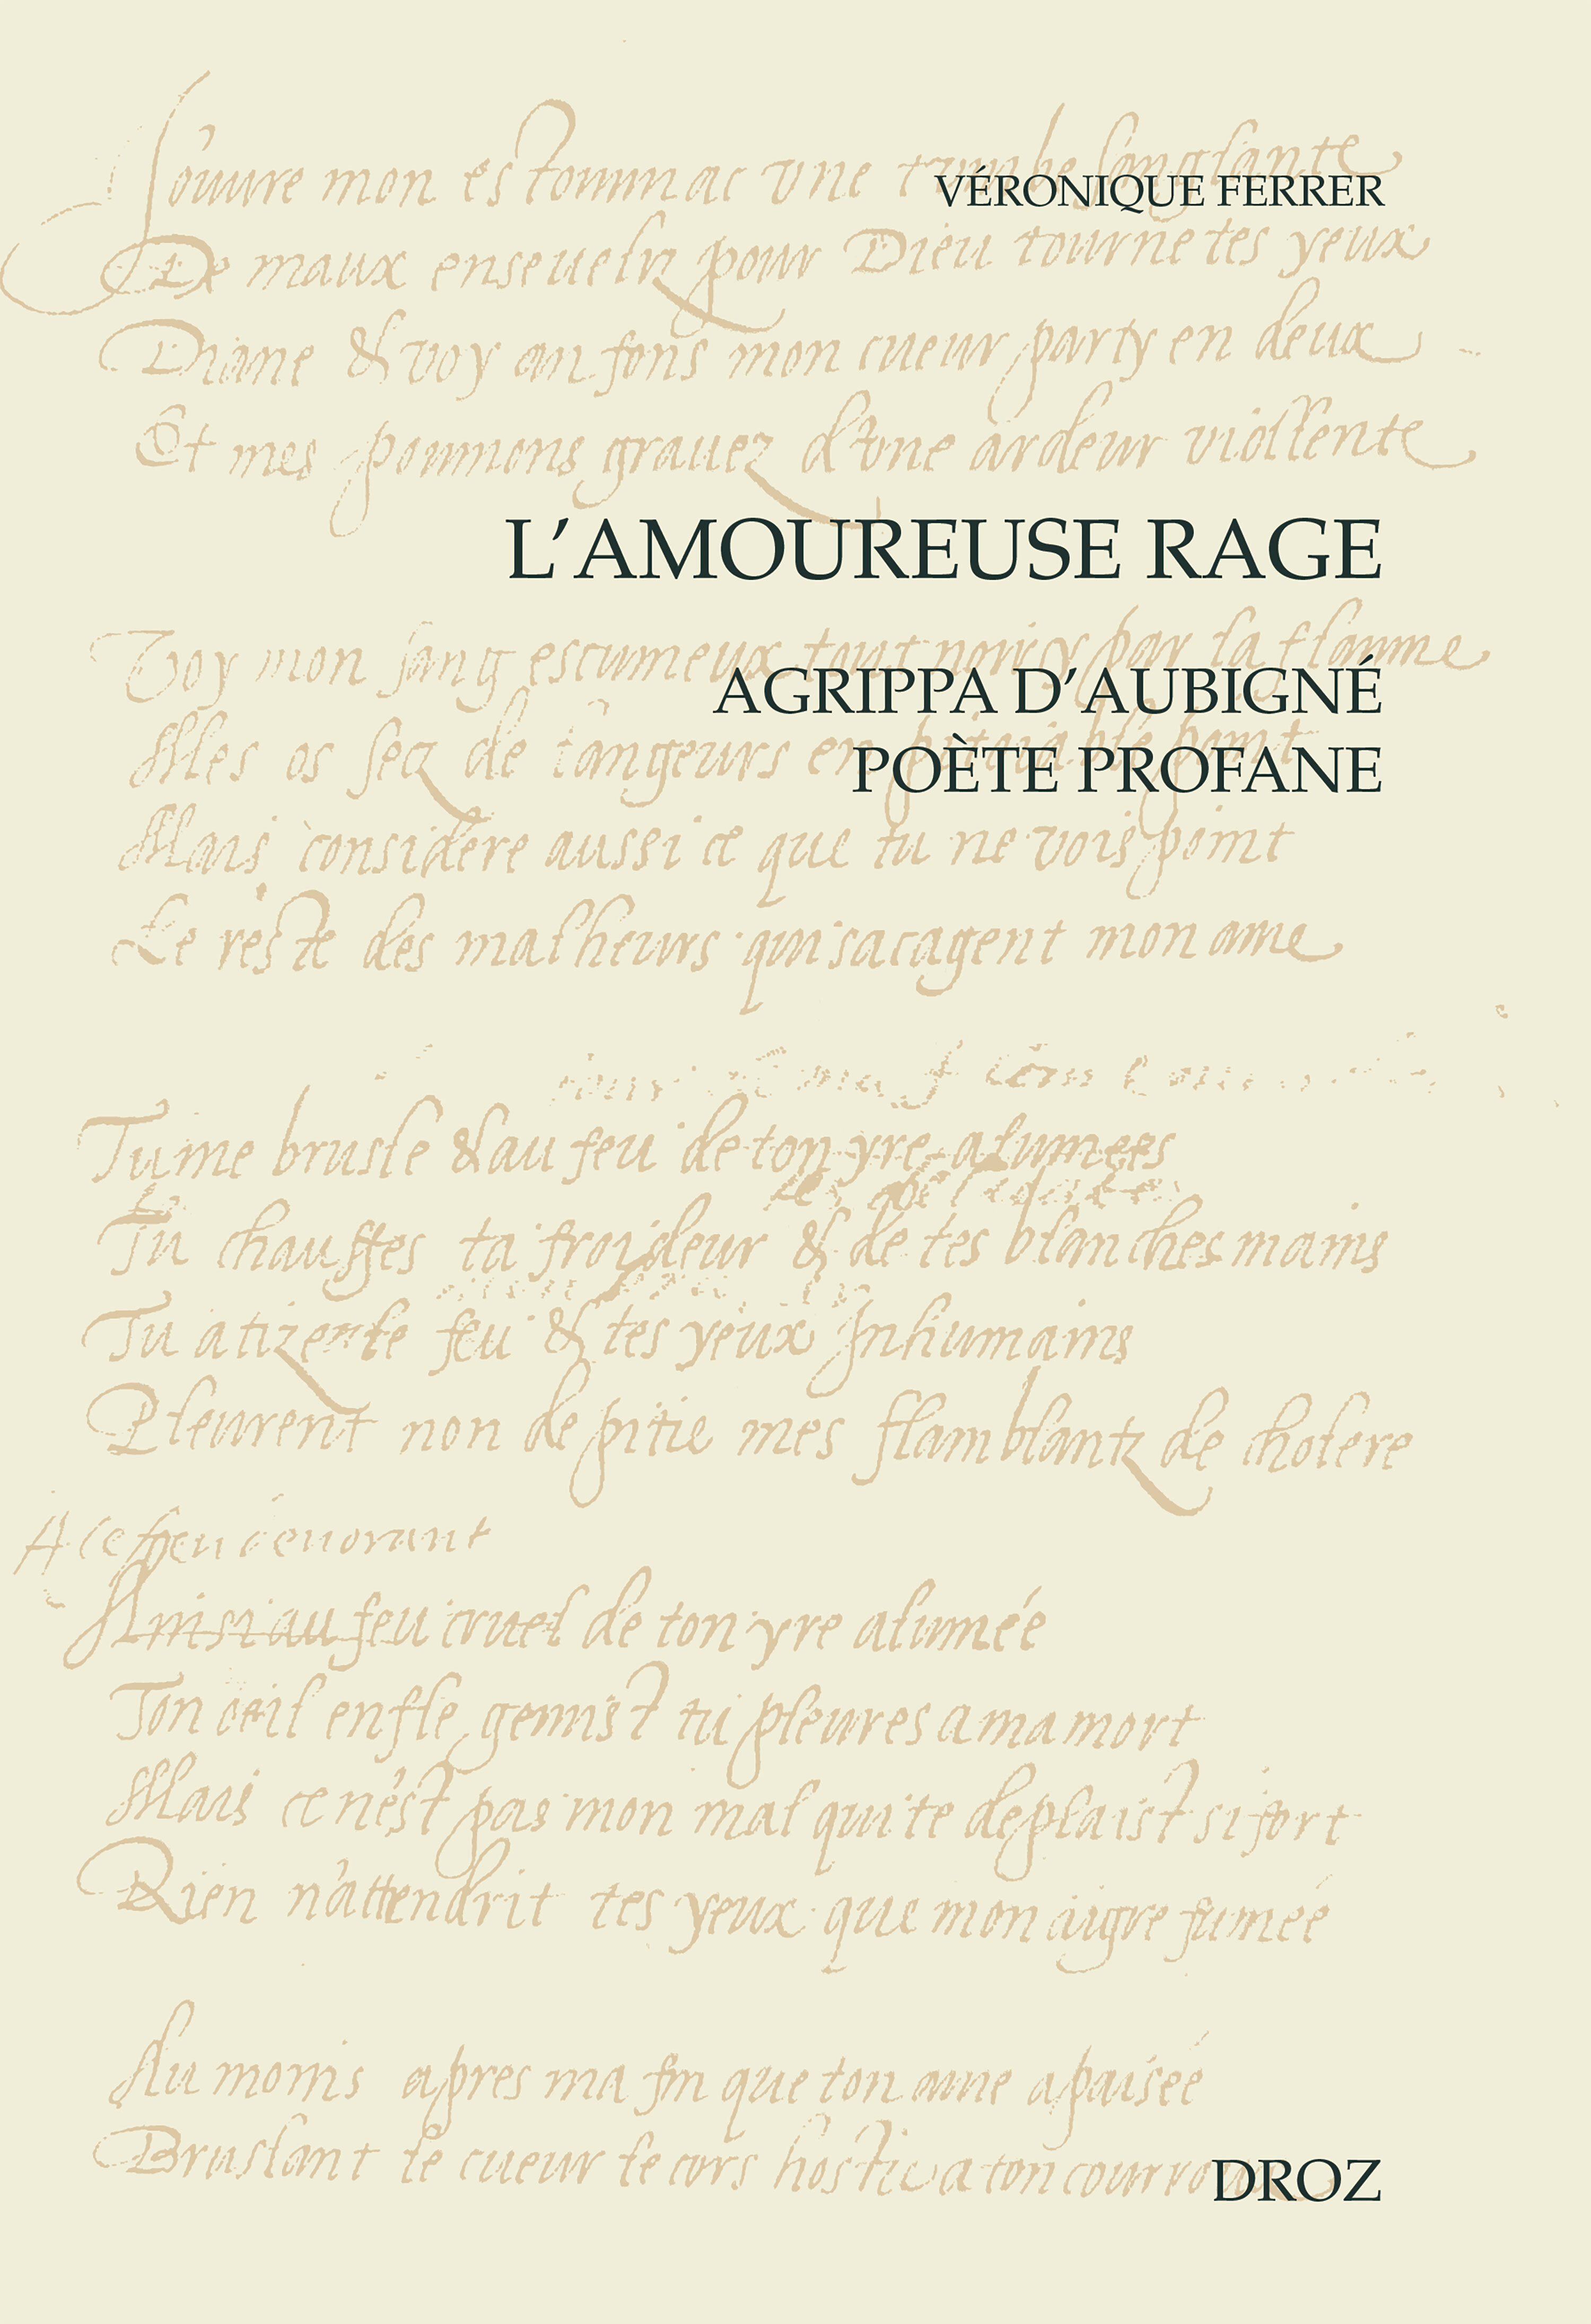 J'ouvre mon estommac une tumbe sanglante
VÉRONIQUE FERRER
De maux enseveliz pour Dieu tourne tes yeux
Diane & voy au fons mon cueur party en deux
Et mes poumons gravez d'une ardeur viollente
L'AMOUREUSE RAGE
Voy mon sang escumeux tout noircy par la flamme
AGRIPPA D'AUBIGNÉ
Mes os secz de langeurs en pitoiable point
POÈTE PROFANE
Mais considere aussi ce que tu ne vois point
Le reste des malheurs qui sacagent mon ame
Tu me brusle & au feu de ton yre alumees
Tu chauffes ta froideur & de tes blanches mains
Tu atize le feu & tes yeux Inhumains
Pleurent non de pitie mes flamblantz de cholere
A ce feu devorant
Ainsi au feu cruel de ton yre alumée
Ton oeil enfle gemist tu pleures a ma mort
Mais ce n'est pas mon mal qui te deplaist si fort
Rien n'attendrit tes yeux que mon aigre fumée
Au moins apres ma fin que ton ame apaisée
Bruslant le cueur le cors hostie a ton courroux
DROZ